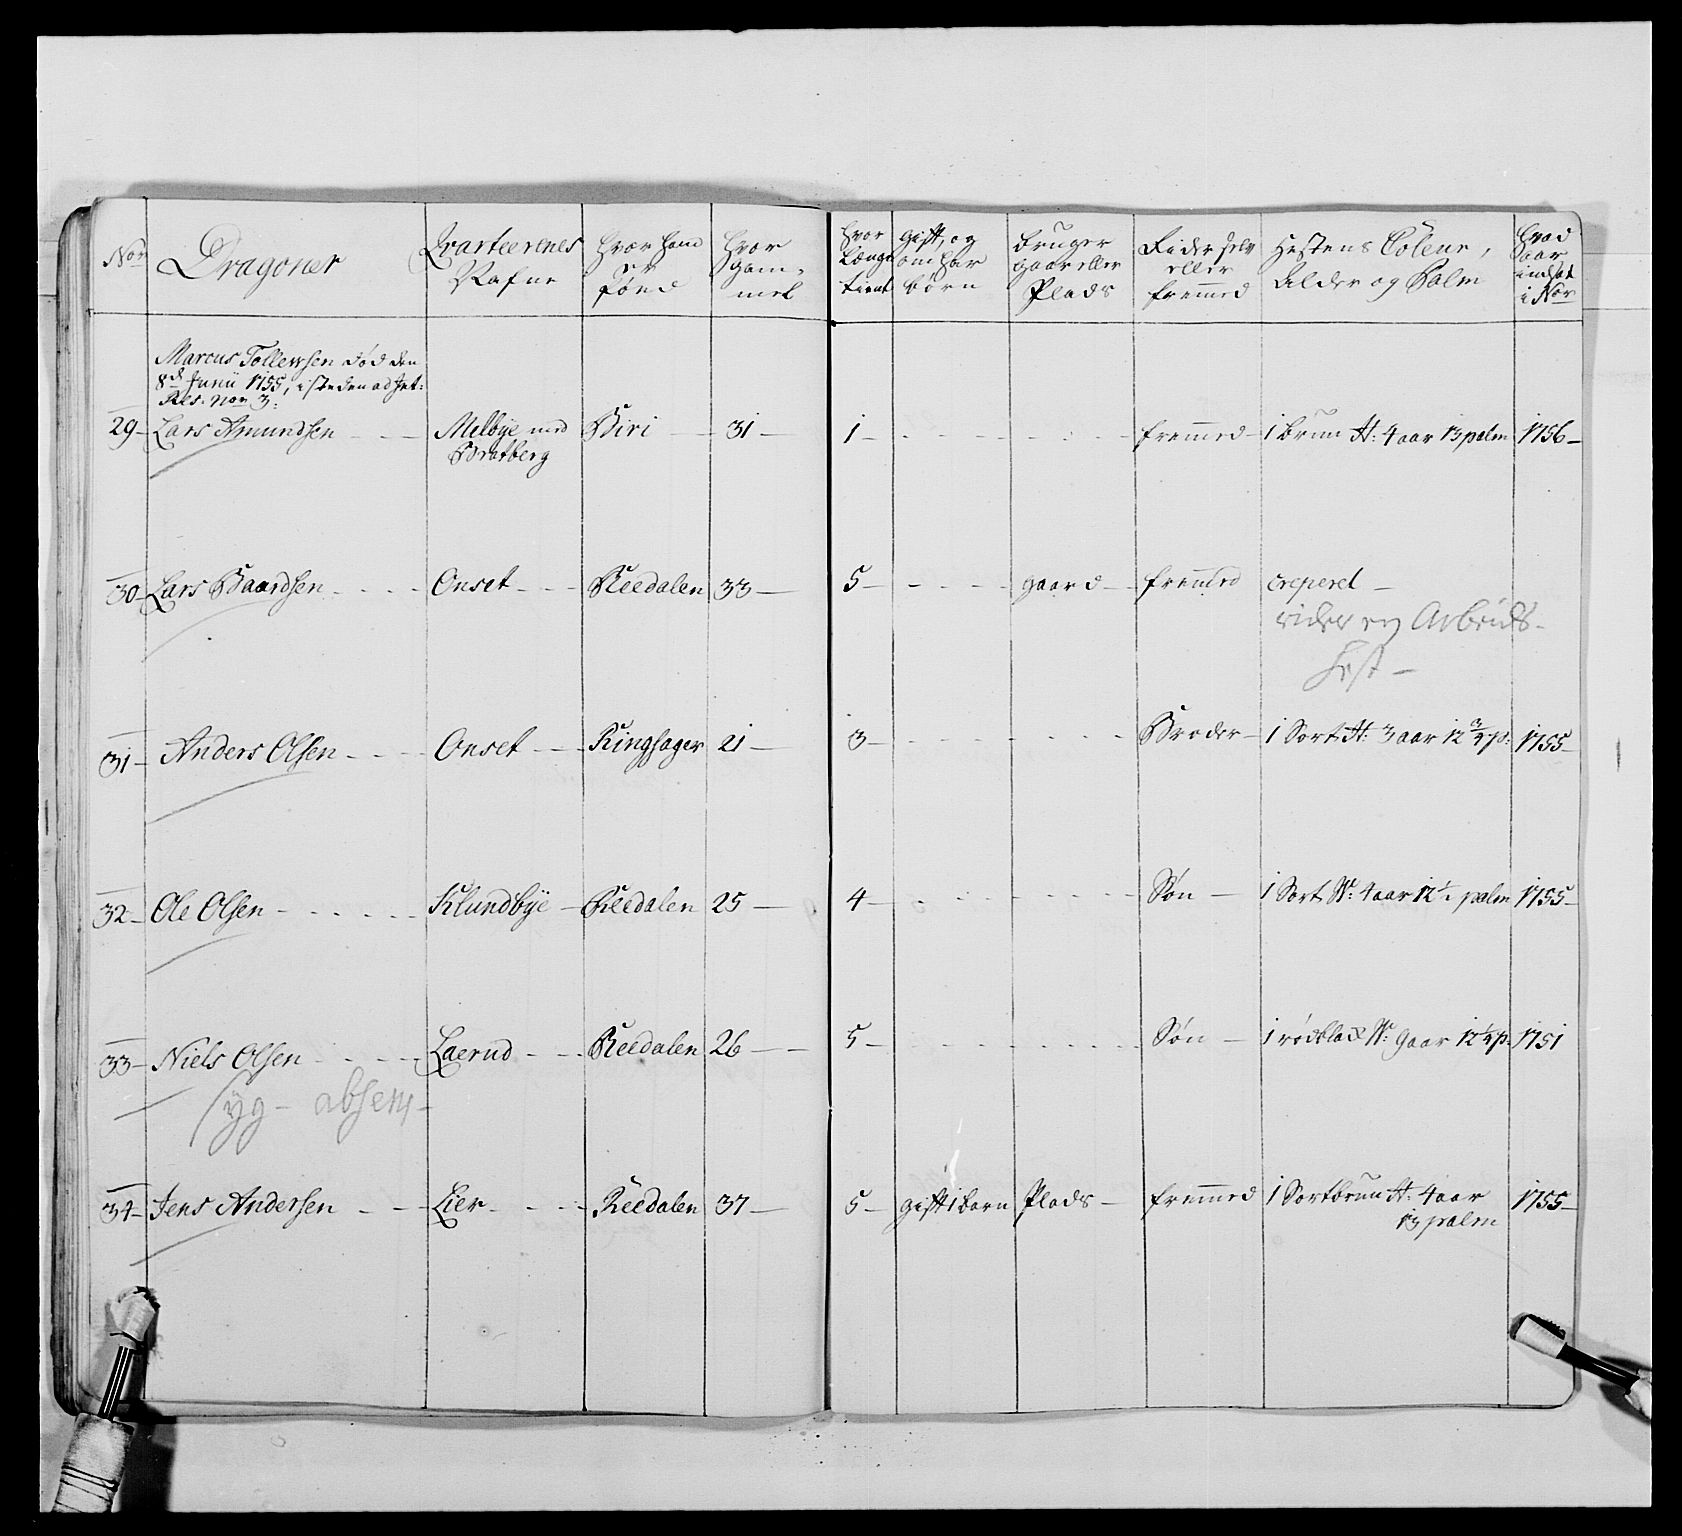 Nor
Dragoner
Qvarteerenes Nafne
hvor hand er fød
hvor gam-mel
hvor længe tient
gift, og om har børn
bruger gaar eller Plads
Rider selv eller fremmed
Hestens Cöleur, Alder og Palm
hvad aar indsat i Nor
Marcus Tollewsen død den
8de Junii 1755, isteden ad Int:
Res. Nor 3.
29 Lars Amundsen - - - Melbye med Biri - 31 - 1 - - - - - - - fremmed - 1 brun H: 4 aar 13 palm 1756 -
Bratberg
30 Lars Baardsen - - - - Onset - - - Reedalen 33 - 5 - - - - - gaard - fremmed creperet -
rider en Arbeids-
Hest -
31 - Anders Olsen - - - Onset - - - Ringsager 21 - 3 - - - - - - - Broder - 1 Sort H: 3 aar 12 3/4 p: 1755 -
32 - Ole Olsen - - - - - Klundbye - Reedalen 25 - 4 - - - - - - - Søn - 1 Sort W: 4 aar 12 1/2 palm 1755 -
33 - Niels Olsen - - - - Laerud - - - Reedalen 26 - 5 - - - - - - - Søn - 1 rødblad W: 9 aar 12 1/4 p. 1751
syg - absens -
34 - Jens Andersen - - - Lier - - - Reedalen 37 - 5 - gift 1 barn Plads - fremmed 1 Sortbrun H: 4 aar 1755 -
13 palm